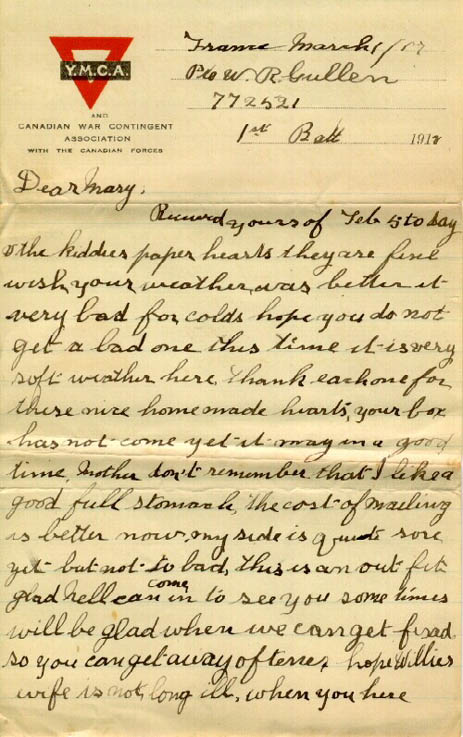 France March 1/17
Pte W. R Cullen
772521
1st Batt 191
Y.M.C.A.
AND
CANADIAN WAR CONTINGENT
ASSOCIATION
WITH THE CANADIAN FORCES
Dear Mary,
Received yours of Feb 5 to day
& the kiddies paper hearts they are fine
wish your weather was better it
very bad for colds hope you do not
get a bad one this time it is very
soft weather here, thank each one for
these nice home made hearts, your box
has not come yet it may in a good
time, Mother don't remember that I like a
good full stomach, the cost of mailing
is better now, my side is quite sore
yet but not to bad, this is an out fit
glad Nell can come in to see you some times
will be glad when we can get fixed
so you can get away oftener, hope Willies
wife is not long ill, when you here